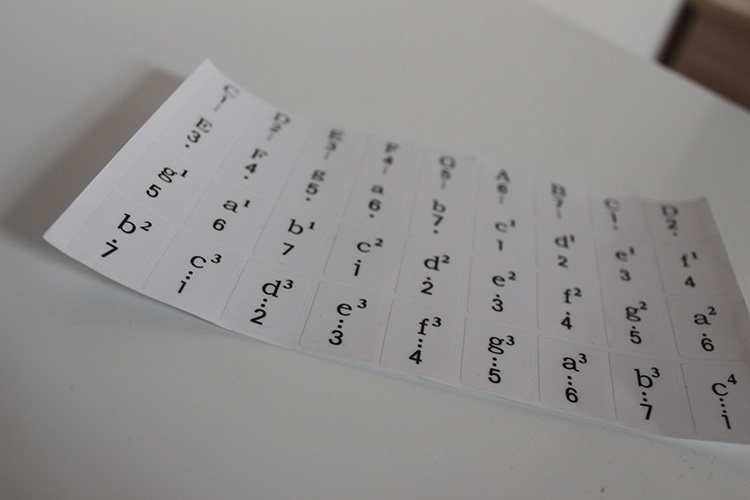 C D E F G A B C D
1 2 3 4 5 6 7 1 2
E F g a b c¹ d¹ e¹ f¹
3 4 5 6 7 1 2 3 4
g¹ a¹ b¹ c² d² e² f² g² a²
5 6 7 1 2 3 4 5 6
b² c³ d³ e³ f³ g³ a³ b³ c⁴
7 1 2 3 4 5 6 7 1